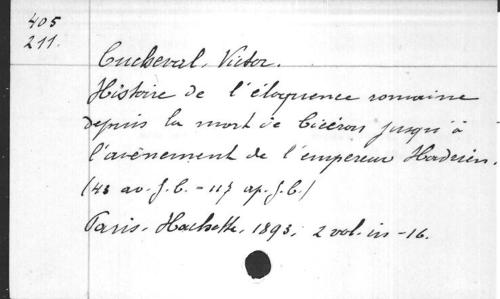 405
211.
Cucheval, Victor.
Histoire de l'éloquence romaine
depuis la mort de Cicéron jusqu'à
l'avènement de l'empereur Hadrien.
(43 av. J. C. - 117 ap. J. C.)
Paris, Hachette, 1893, 2 vol. in-16.